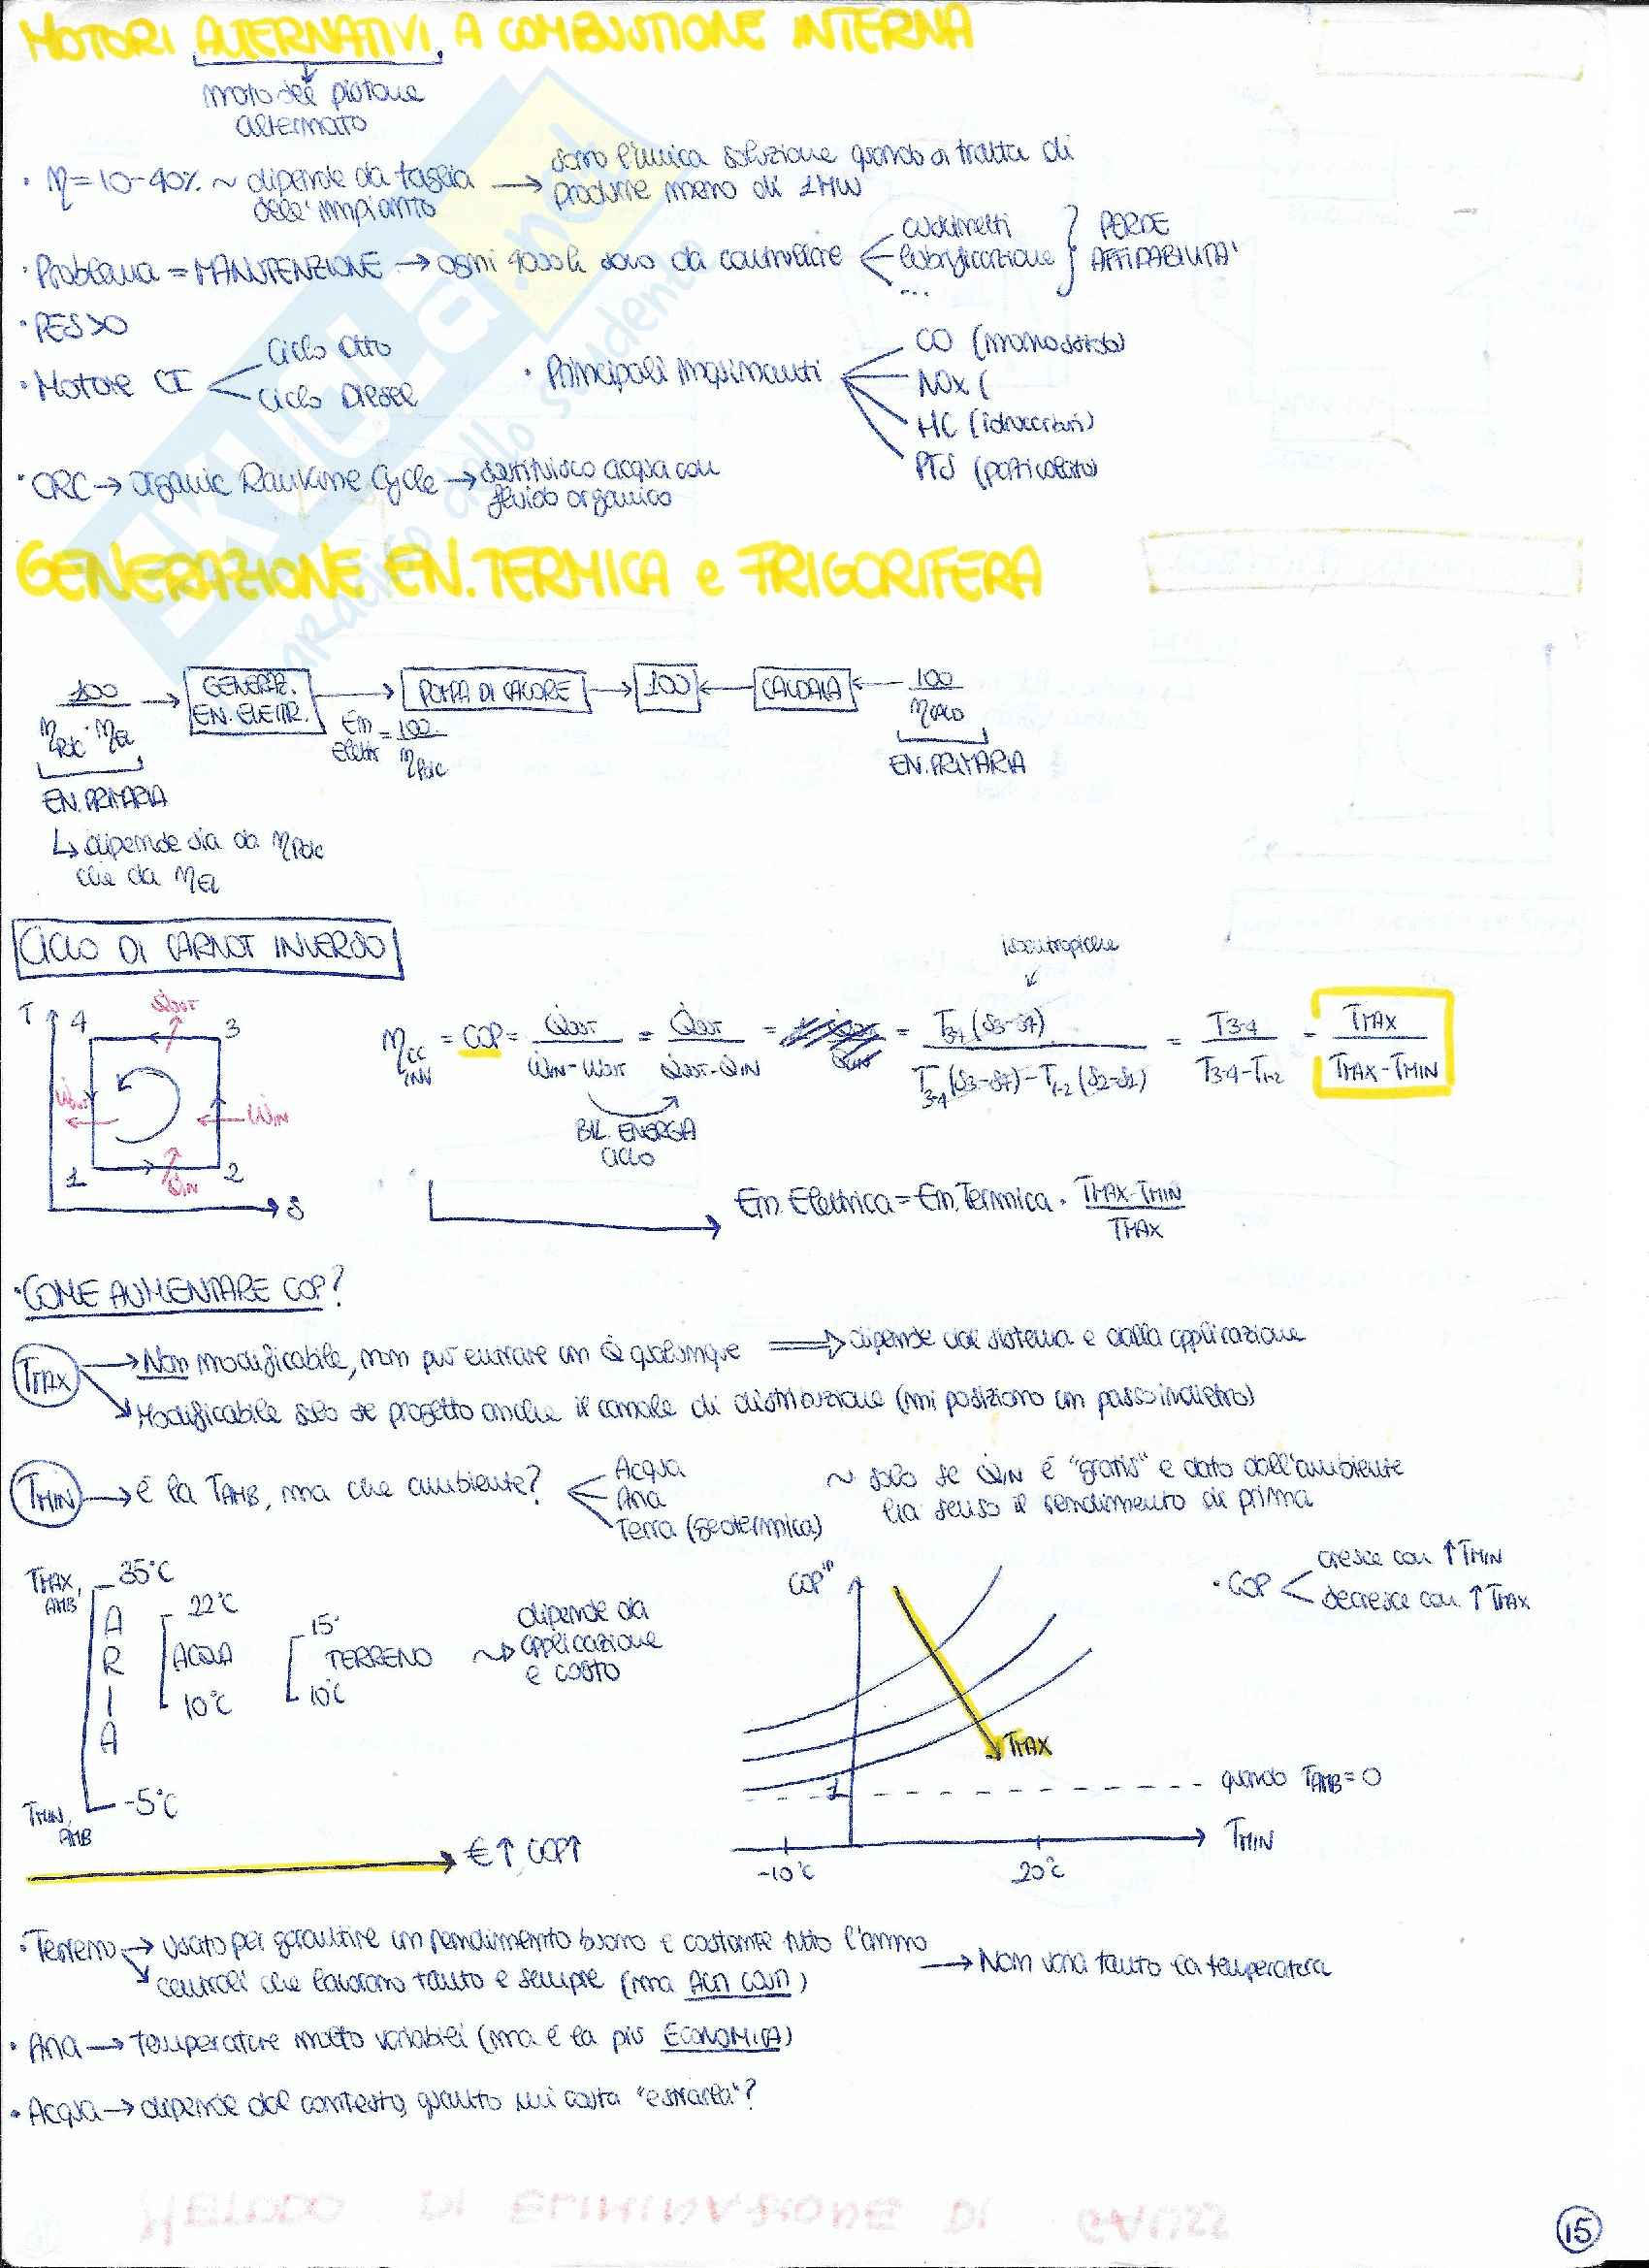 MOTORI ALTERNATIVI A COMBUSTIONE INTERNA
moto del pistone
alternato
• η=10-40% ~ dipende da taglia
dell'impianto
→ sono l'unica soluzione quando si tratta di
produrre meno di 1MW
• Problema = MANUTENZIONE → ogni 4000h sono da controllare
cuscinetti
lubrificazione
...
PERDE
AFFIDABILITA'
• PESO
• Motore CI
Ciclo Otto
Ciclo Diesel
• Principali inquinanti
CO (monossido)
NOx (
HC (idrocarburi)
PTS (particolato)
• ORC → Organic Rankine Cycle → sostituisco acqua con
fluido organico
GENERAZIONE EN. TERMICA e FRIGORIFERA
100 / ηPdC · ηEl → GENERAZ. EN. ELETTR. → POMPA DI CALORE → 100 ← CALDAIA ← 100 / ηCALD
En Elettr = 100 / ηPdC
EN. PRIMARIA
EN. PRIMARIA
↳ dipende sia da ηPdC
che da ηEl
CICLO DI CARNOT INVERSO
isoentropiche
T 4 3 1 2 S
Q̇OUT
ẆOUT
ẆIN
Q̇IN
ηCC INV = COP = Q̇OUT / ẆIN-ẆOUT = Q̇OUT / Q̇OUT-Q̇IN = = T3-4(S3-S4) / T3-4(S3-S4)-T1-2(S2-S1) = T3-4 / T3-4-T1-2 = TMAX / TMAX-TMIN
BIL. ENERGIA
CICLO
En. Elettrica = En. Termica · TMAX-TMIN / TMAX
• COME AUMENTARE COP?
TMAX → Non modificabile, non può entrare un Q̇ qualunque ⇒ dipende dal sistema e dalla applicazione
Modificabile solo se progetto anche il canale di distribuzione (mi posiziono un passo indietro)
TMIN → è la TAMB, ma che ambiente?
Acqua
Aria
Terra (geotermica)
~ solo se Q̇IN è "gratis" e dato dall'ambiente
ha senso il rendimento di prima
TMAX, AMB 35°C
ARIA
TMIN, AMB -5°C
22°C
ACQUA
10°C
15°
TERRENO
10°C
dipende da
applicazione
e costo
€↑ COP↑
COP
1
TMAX
quando TAMB = 0
TMIN
-10°C
20°C
• COP
cresce con ↑TMIN
decresce con ↑TMAX
• Terreno → usato per garantire un rendimento buono e costante tutto l'anno → Non varia tanto la temperatura
centrali che lavorano tanto e sempre (ma ALTI COSTI)
• Aria → temperature molto variabili (ma è la più ECONOMICA)
• Acqua → dipende dal contesto, quanto mi costa "estrarla"?
15